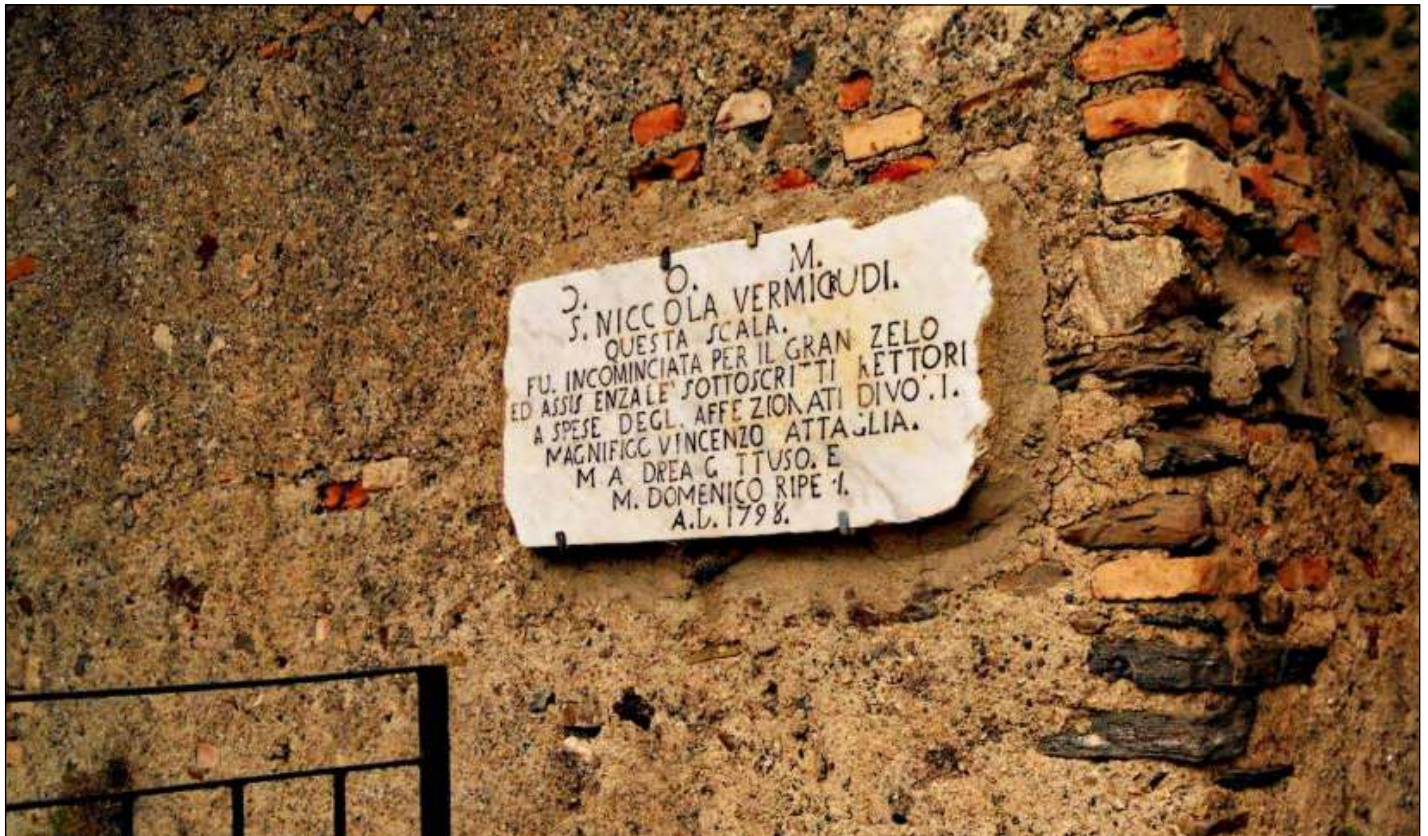 Ɔ. O. M.
S. NICCOLA VERMICRUDI.
QUESTA SCALA.
FU. INCOMINCIATA PER IL GRAN ZELO
ED ASSIS ENZA LE' SOTTOSCRITTI RETTORI
A SPESE DEGL. AFFEZIONATI DIVO . I.
MAGNIFICO VINCENZO ATTAGLIA.
M A DREA G TTUSO. E
M. DOMENICO
A.D. 1798.